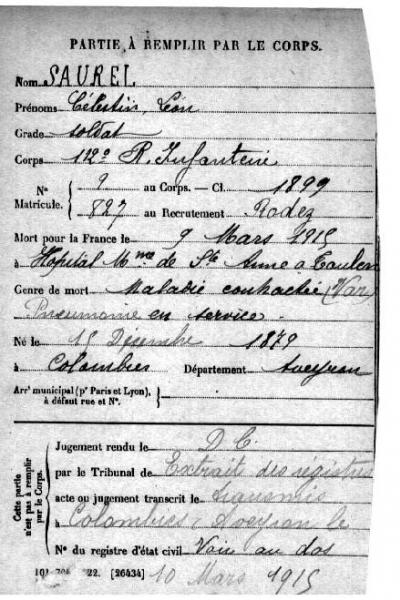 PARTIE À REMPLIR PAR LE CORPS.
Nom SAUREL
Prénoms Célestin, Léon
Grade soldat
Corps 112e R. Infanterie
N° 9 au Corps. — Cl. 1899
Matricule. 827 au Recrutement Rodez
Mort pour la France le 9 Mars 1915
à Hôpital Mme de Ste Anne à Toulon
Genre de mort Maladie contractée (Var)
Pneumonie en service
Né le 15 Décembre 1879
à Colombiès Département Aveyron
Arrt municipal (pr Paris et Lyon),
à défaut rue et N°.
Cette partie
n'est pas à remplir
par le Corps.
Jugement rendu le D.C.
par le Tribunal de Extrait des régistres
acte ou jugement transcrit le transmis
à Colombiès, Aveyron le
N° du registre d'état civil Voir au dos
22. [26434] 10 Mars 1915